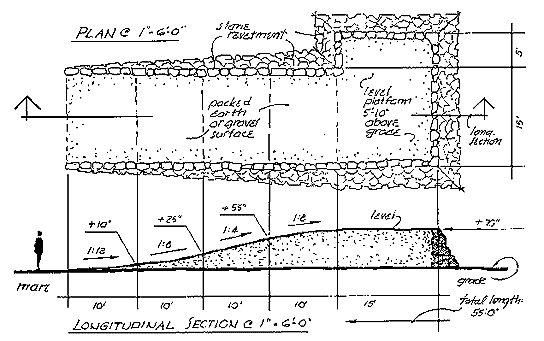 PLAN @ 1" = 6'0"
stone
revetment
packed
earth
or gravel
surface
level
platform
5'-10"
above
grade
5'
15'
long.
section
+10"
+55"
1:12
1:6
1:4
1:8
level
man
grade
10'
10'
10'
10'
15'
total length:
55'0"
LONGITUDINAL SECTION @ 1" = 6'0"